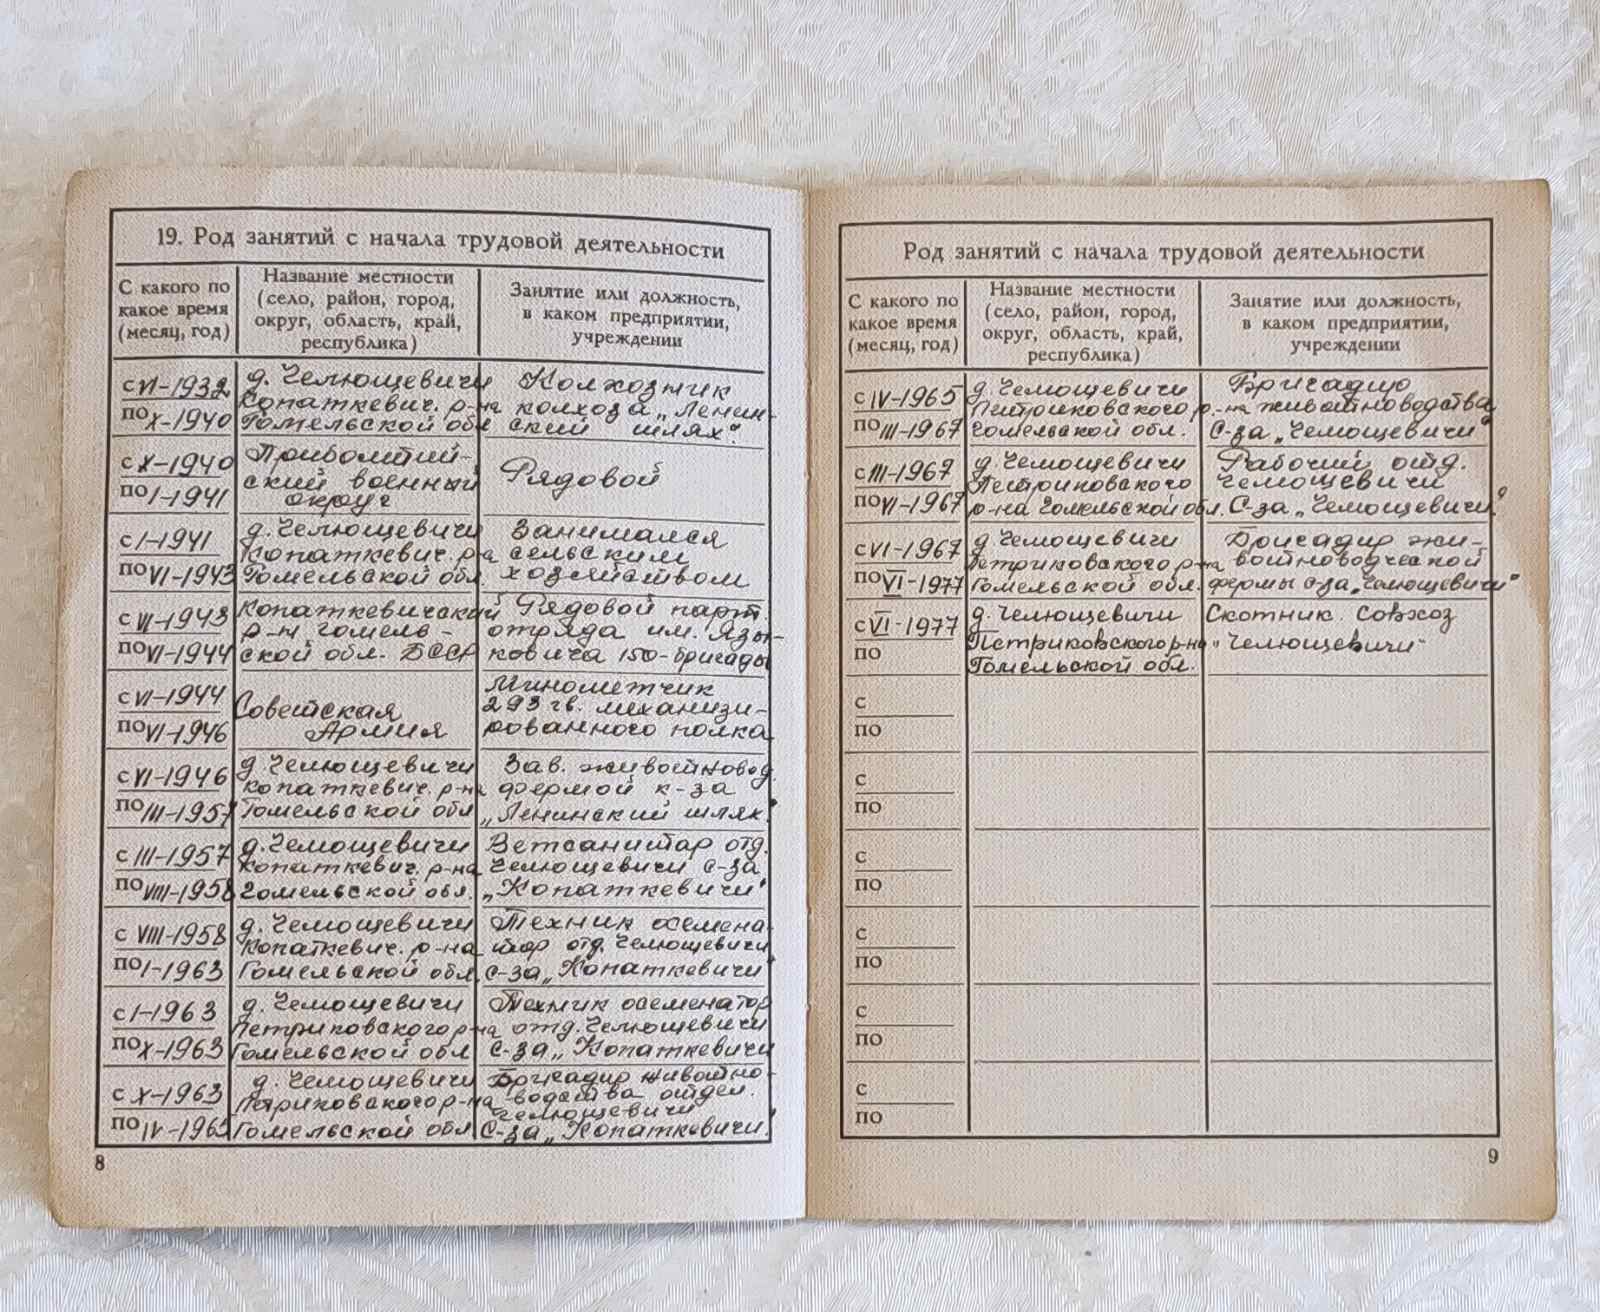 19. Род занятий с начала трудовой деятельности
С какого по
какое время
(месяц, год)
Название местности
(село, район, город,
округ, область, край,
республика)
Занятие или должность,
в каком предприятии,
учреждении
с VI-1932
по X-1940
д. Челющевичи
Копаткевич. р-на
Гомельской обл
Колхозник
колхоза „Ленин-
ский шлях".
с X-1940
по I-1941
Прибалтий-
ский военный
округ
Рядовой
с I-1941
по VI-1943
д. Челющевичи
Копаткевич. р-на
Гомельской обл.
Занимался
сельским
хозяйством
с VI-1943
по VI-1944
Копаткевический
р-н гомель-
ской обл. БССР
Рядовой парт.
отряда им. Язь-
ковича 150-бригады
с VI-1944
по VI-1946
Советская
Армия
Минометчик
293 гв. механизи-
рованного полка
с VI-1946
по III-1957
д. Челющевичи
Копаткевич. р-на
Гомельской обл
Зав. животновод.
фермой к-за
„Ленинский шлях"
с III-1957
по VIII-1958
д. Челющевичи
Копаткевич. р-на
гомельской обл.
Ветсанитар отд.
Челющевичи С-за
„Копаткевичи"
с VIII-1958
по I-1963
д. Челющевичи
Копаткевич. р-на
Гомельской обл.
Техник осемена-
тор отд. Челющевичи
С-за „Копаткевичи"
с I-1963
по X-1963
д. Челющевичи
Петриковского р-на
Гомельской обл
Техник осеменатор
отд. Челющевичи
С-за „Копаткевичи
с X-1963
по IV-1965
д. Челющевичи
Петриковского р-на
Гомельской обл
Бригадир животно-
водства отдел.
Челющевичи
С-за „Копаткевичи."
8
Род занятий с начала трудовой деятельности
С какого по
какое время
(месяц, год)
Название местности
(село, район, город,
округ, область, край,
республика)
Занятие или должность,
в каком предприятии,
учреждении
с IV-1965
по III-1967
д. Челющевичи
Петриковского р-на
гомельской обл.
Бригадир
животноводства
С-за „Челющевичи"
с III-1967
по VI-1967
д. Челющевичи
Петриковского
р-на Гомельской обл.
Рабочий отд.
Челющевичи
С-за „Челющевичи"
с VI-1967
по VI-1977
д. Челющевичи
Петриковского р-на
Гомельской обл.
Бригадир жи-
вотноводческой
фермы с-за „Челющевичи"
с VI-1977
по
д. Челющевичи
Петриковского р-на
Гомельской обл.
Скотник совхоз
"Челющевичи"
с
по
с
по
с
по
с
по
с
по
с
по
9